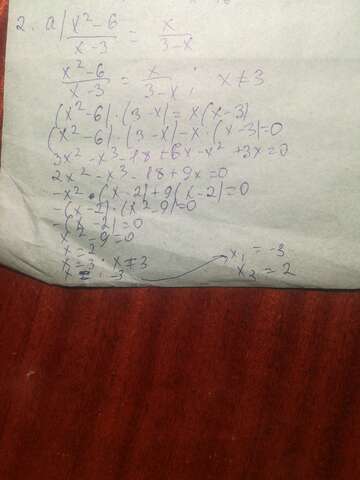 2. a) x²-6 / x-3 = x / 3-x
x²-6 / x-3 = x / 3-x ; x≠3
(x²-6)·(3-x)=x(x-3)
(x²-6)·(3-x)-x·(x-3)=0
3x²-x³-18+6x-x²+3x=0
2x²-x³-18+9x=0
-x²·(x-2)+9(x-2)=0
-(x-2)·(x²-9)=0
-(x-2)=0
x²-9=0
x=2
x=3 ; x≠3
x=-3
x₁=-3
x₂=2